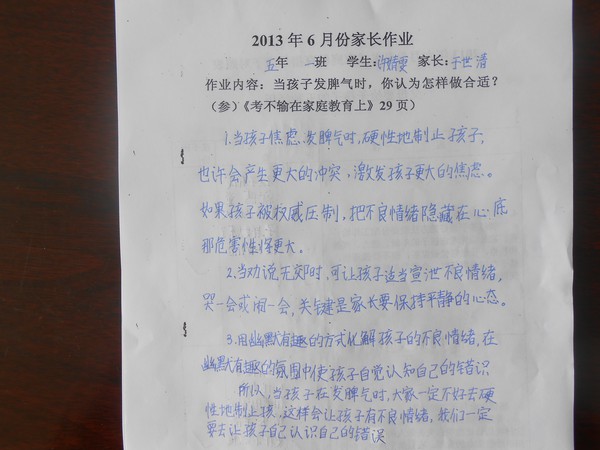 2013 年 6 月份家长作业
五年 一班 学生： 家长：于世清
作业内容：当孩子发脾气时，你认为怎样做合适？
（参）《考不输在家庭教育上》29 页）
1.当孩子焦虑、发脾气时，硬性地制止孩子，
也许会产生更大的冲突，激发孩子更大的焦虑。
如果孩子被权威压制，把不良情绪隐藏在心底
那危害性将更大。
2.当劝说无效时，可让孩子适当宣泄不良情绪，
哭一会或闹一会，关键是家长要保持平静的心态。
3.用幽默有趣的方式化解孩子的不良情绪，在
幽默有趣的氛围中使孩子自觉认知自己的错误
所以，当孩子在发脾气时，大家一定不好去硬
性地制止孩，这样会让孩子有不良情绪，我们一定
要去让孩子自己认识自己的错误